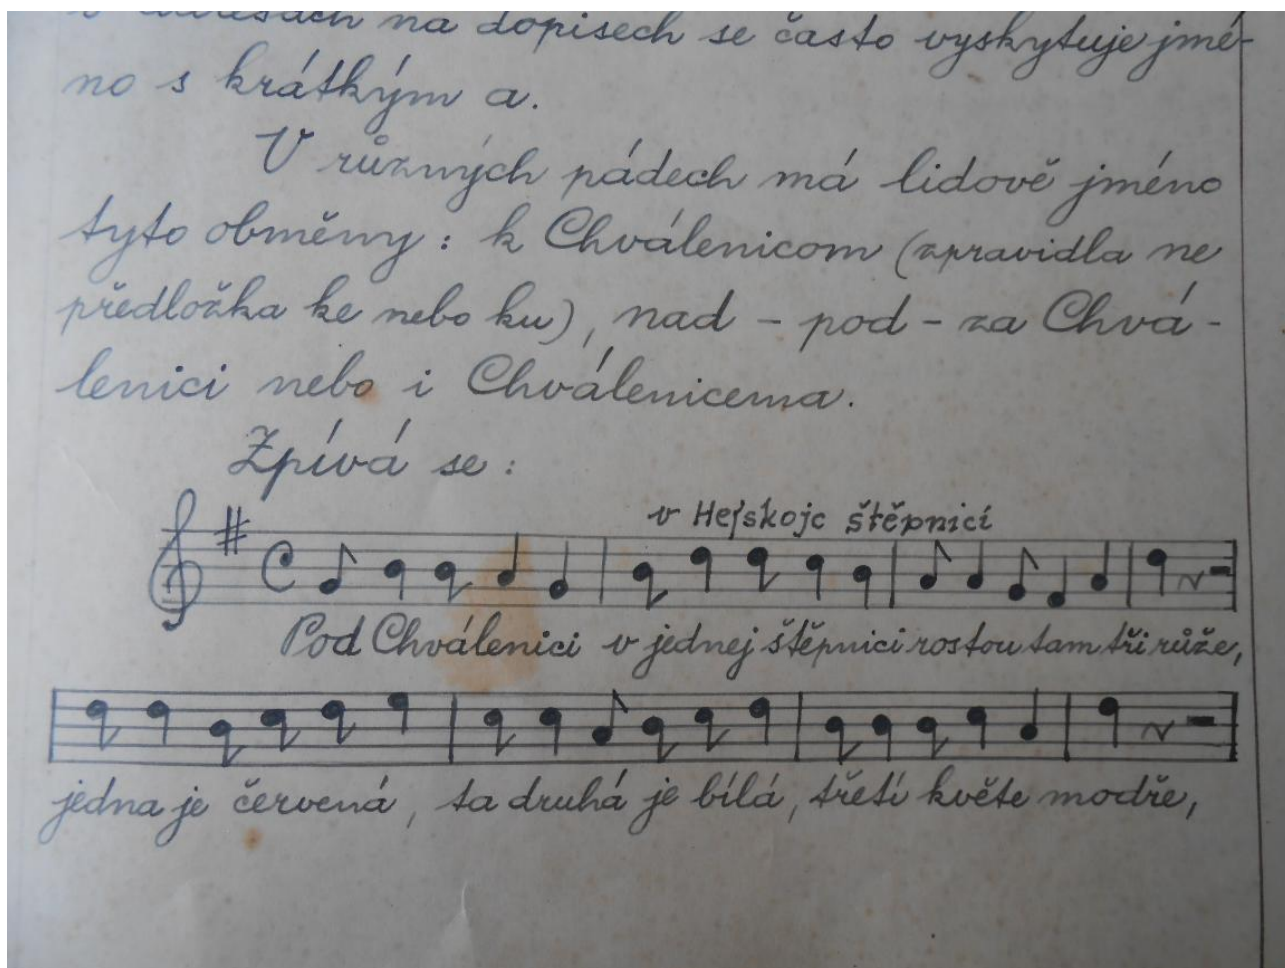 v adresách na dopisech se často vyskytuje jmé-
no s krátkým a.
V různých pádech má lidově jméno
tyto obměny: k Chválenicom (zpravidla ne
předložka ke nebo ku), nad - pod - za Chvá-
lenici nebo i Chválenicema.
Zpívá se:
v Hejskojc štěpnici
Pod Chválenici v jednej štěpnici rostou tam tři růže,
jedna je červená, ta druhá je bílá, třetí květe modře,